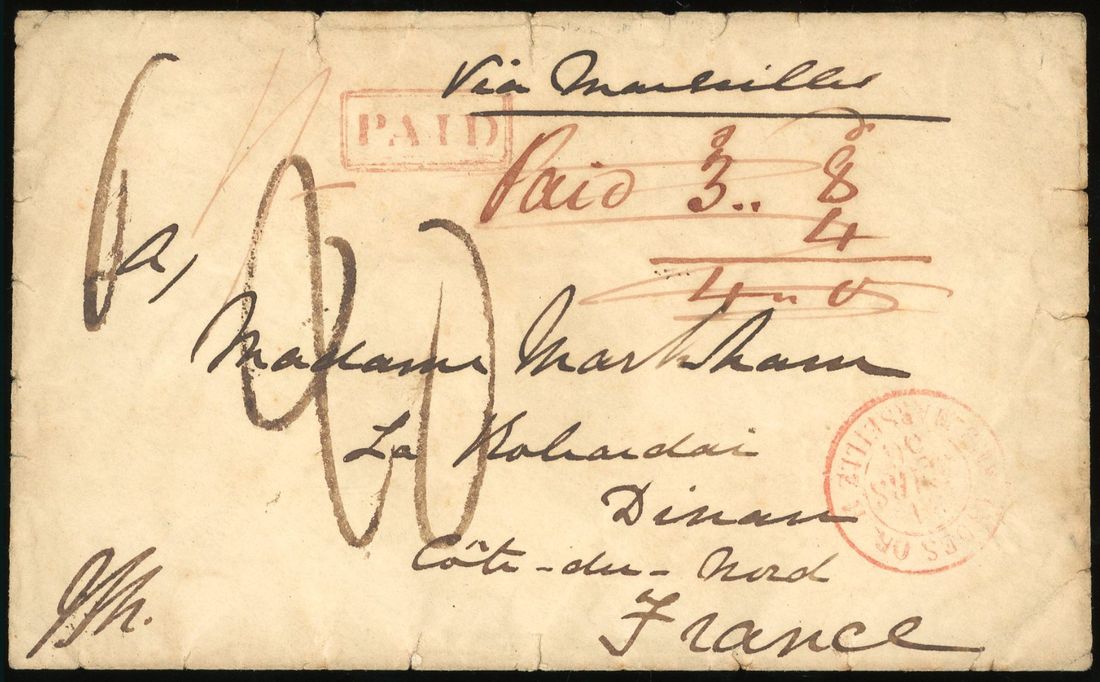 Via Marseilles
PAID
Paid 3.. 8
4
4 " 0
6
a,
20
Madame Markham
La
Dinan
Côte-du-Nord
France
INDES OR. MARSEILLE
MARS